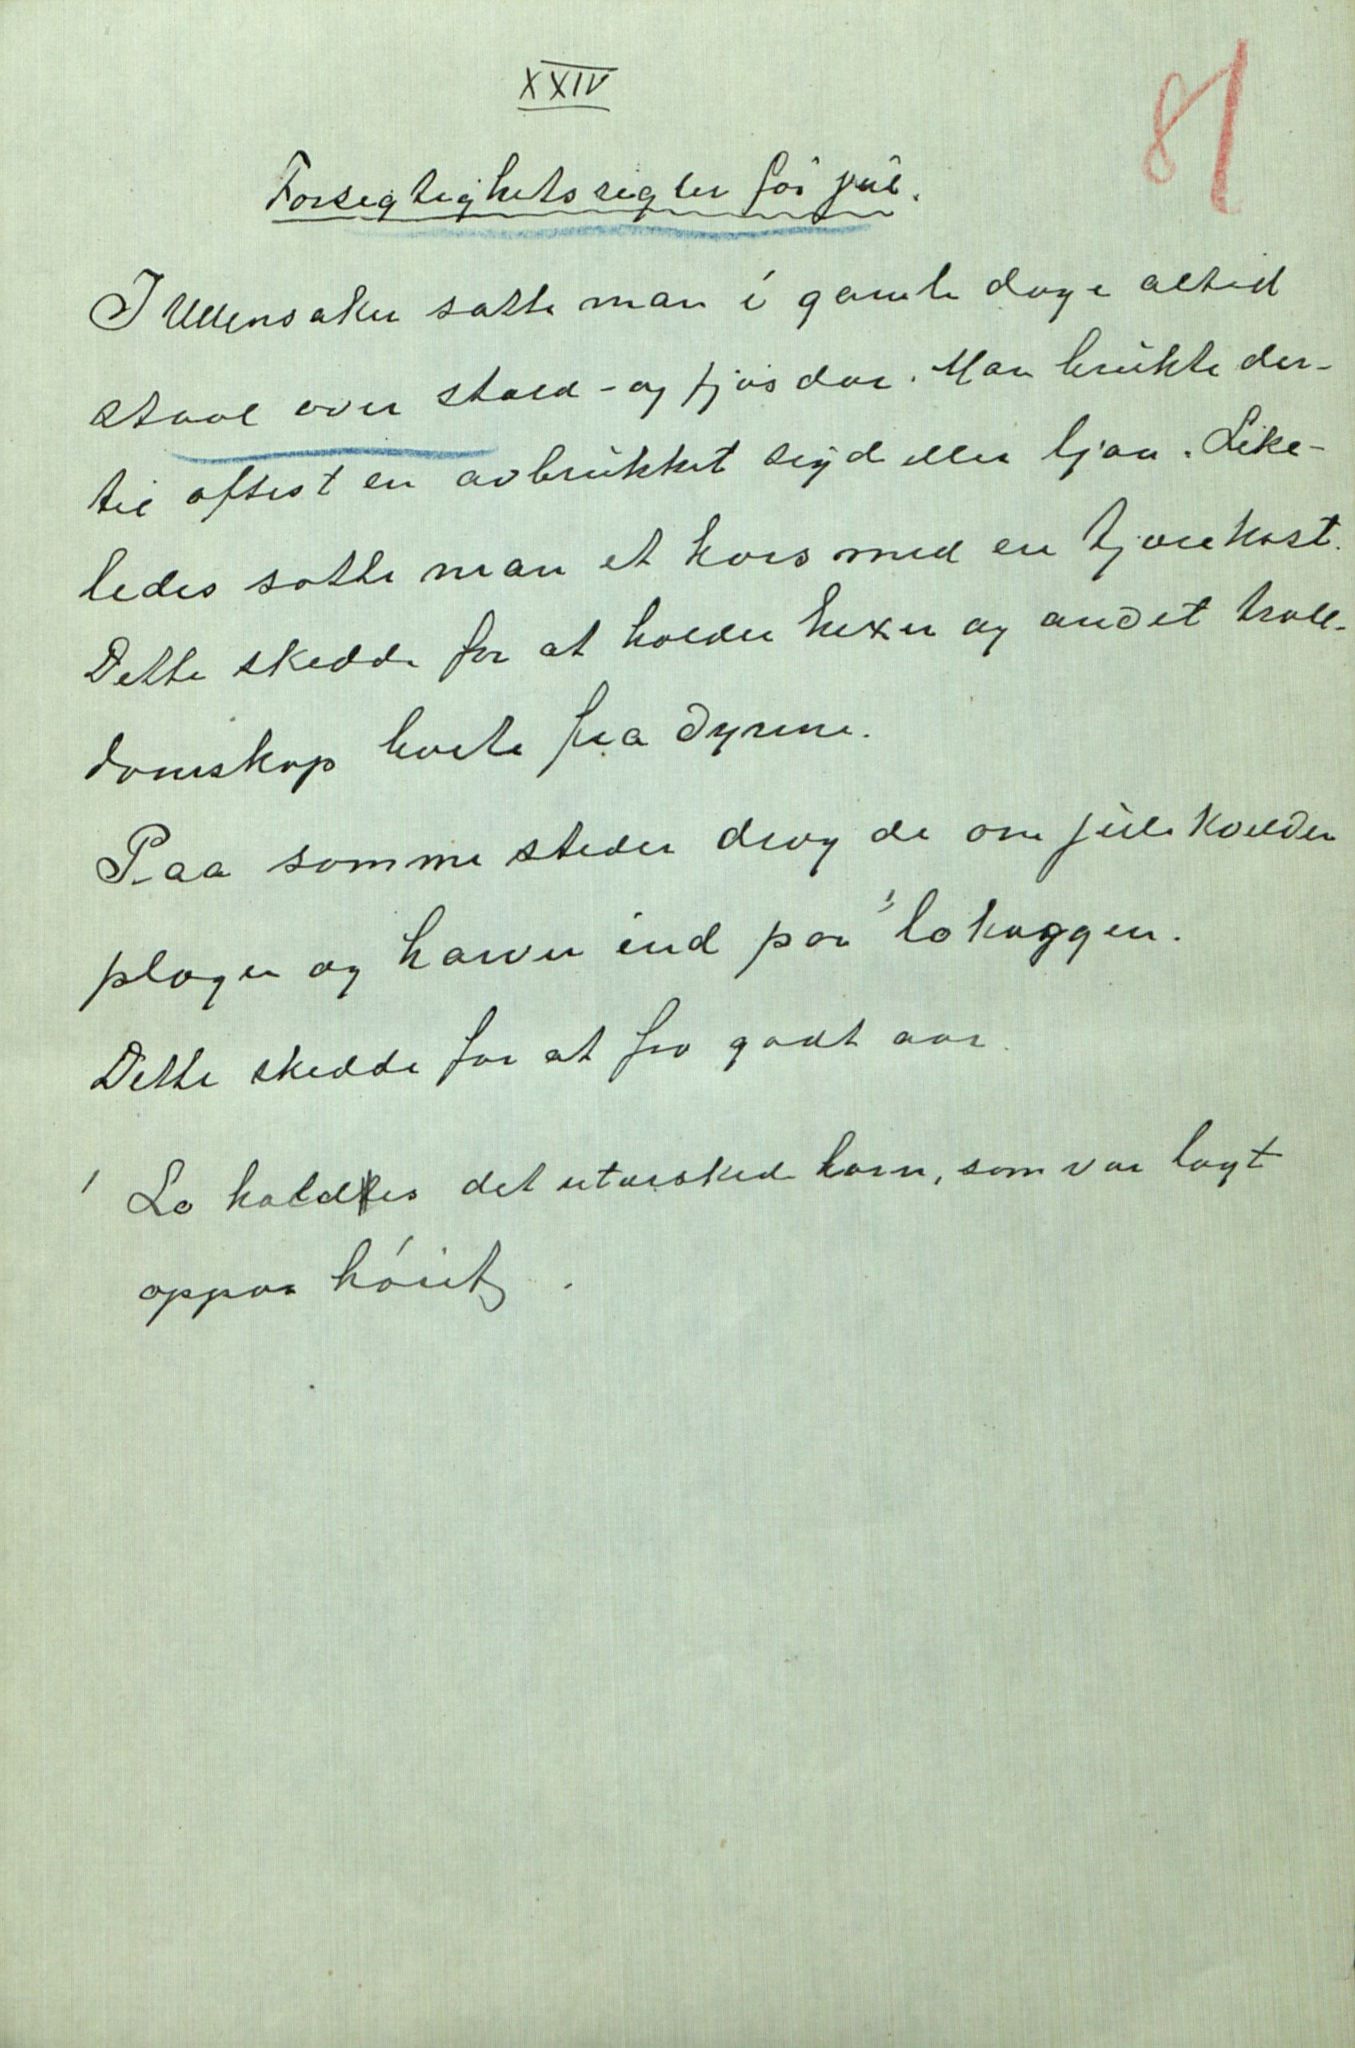 XXIV
81
Forsegtighetsregler før jul.
I Ullensaker satte man i gamle dage altid
staal over stald - og fjøsdør. Man brukte der-
til oftest en avbrukket sigd eller ljaa. Like-
ledes satte man et kors med en tjærekost.
Dette skedde for at holde hexer og andet troll-
domskap borte fra dyrene.
Paa somme steder drog de om julekvelden
ploger og harver ind paa ¹ lohaggen.
Dette skedde for at faa godt aar.
¹ Lo kaldes det utærskede korn, som var lagt
oppaa høiet.